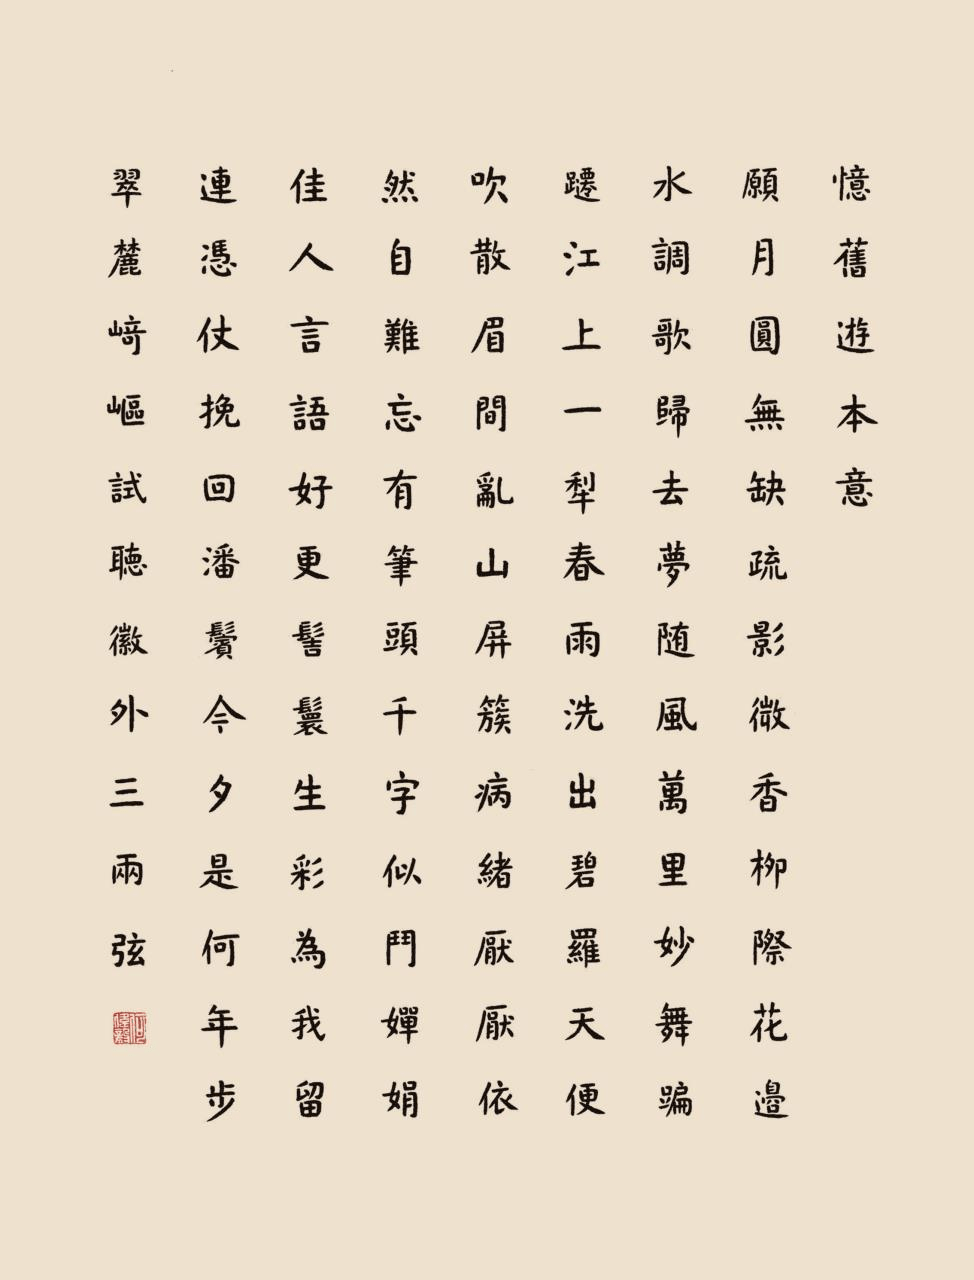 憶舊遊本意
願月圓無缺疏影微香柳際花邊
水調歌歸去夢随風萬里妙舞蹁
躚江上一犁春雨洗出碧羅天便
吹散眉間亂山屏簇病緒厭厭依
然自難忘有筆頭千字似鬥嬋娟
佳人言語好更髻鬟生彩為我留
連憑仗挽回潘鬢今夕是何年步
翠麓崎嶇試聽徽外三兩弦